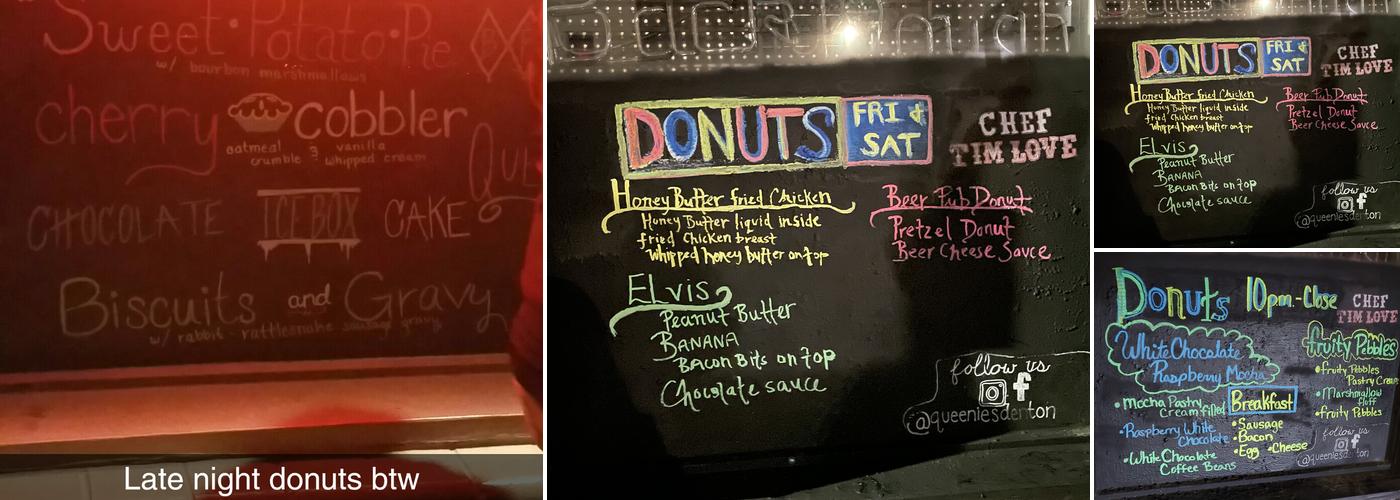 Sweet · Potato · Pie
w/ bourbon marshmallows
cherry cobbler
oatmeal crumble & vanilla whipped cream
CHOCOLATE ICEBOX CAKE
Biscuits and Gravy
w/ rabbit - rattlesnake sausage gravy
Late night donuts btw
DONUTS FRI & SAT
CHEF
TIM LOVE
Honey Butter fried Chicken
Honey Butter liquid inside
fried Chicken breast
whipped honey butter on top
Beer Pub Donut
Pretzel Donut
Beer Cheese Sauce
ELvis
Peanut Butter
BANANA
BACON Bits on top
Chocolate sauce
follow us
@queeniesdenton
DONUTS FRI & SAT
CHEF
TIM LOVE
Honey Butter fried Chicken
Honey Butter liquid inside
fried Chicken breast
whipped honey butter on top
Beer Pub Donut
Pretzel Donut
Beer Cheese Sauce
ELvis
Peanut Butter
BANANA
BACON Bits on top
Chocolate sauce
follow us
@queeniesdenton
Donuts 10pm-Close
CHEF
TIM LOVE
White Chocolate
Raspberry Mocha
• Mocha Pastry
Cream filled
• Raspberry White
Chocolate
• White Chocolate
Coffee Beans
Breakfast
• Sausage
• Bacon
• Egg • Cheese
fruity Pebbles
• fruity Pebbles
Pastry Cream
• Marshmallow
fluff
• fruity Pebbles
follow us